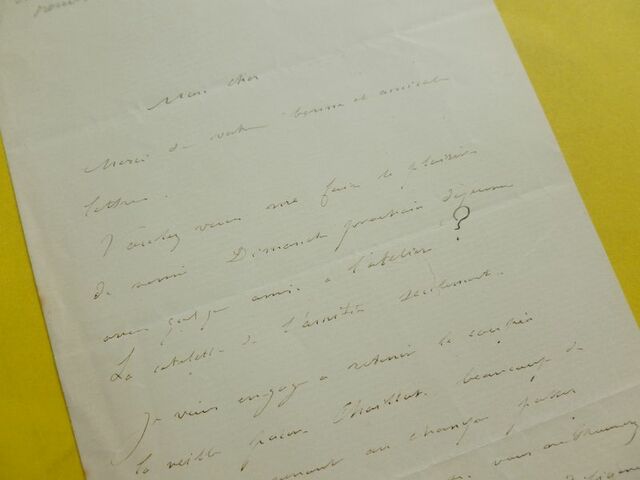 Mon cher
Merci de votre bonne et amicale
lettre.
Voulez vous me faire le plaisir
de venir Dimanche prochain déjeuner
avec quelq amis a l'atelier ?
La cotelette de l'amitié seulement.
Je vous engage a retenir le
la veille pour Chaillot. beaucoup de
au change
vous